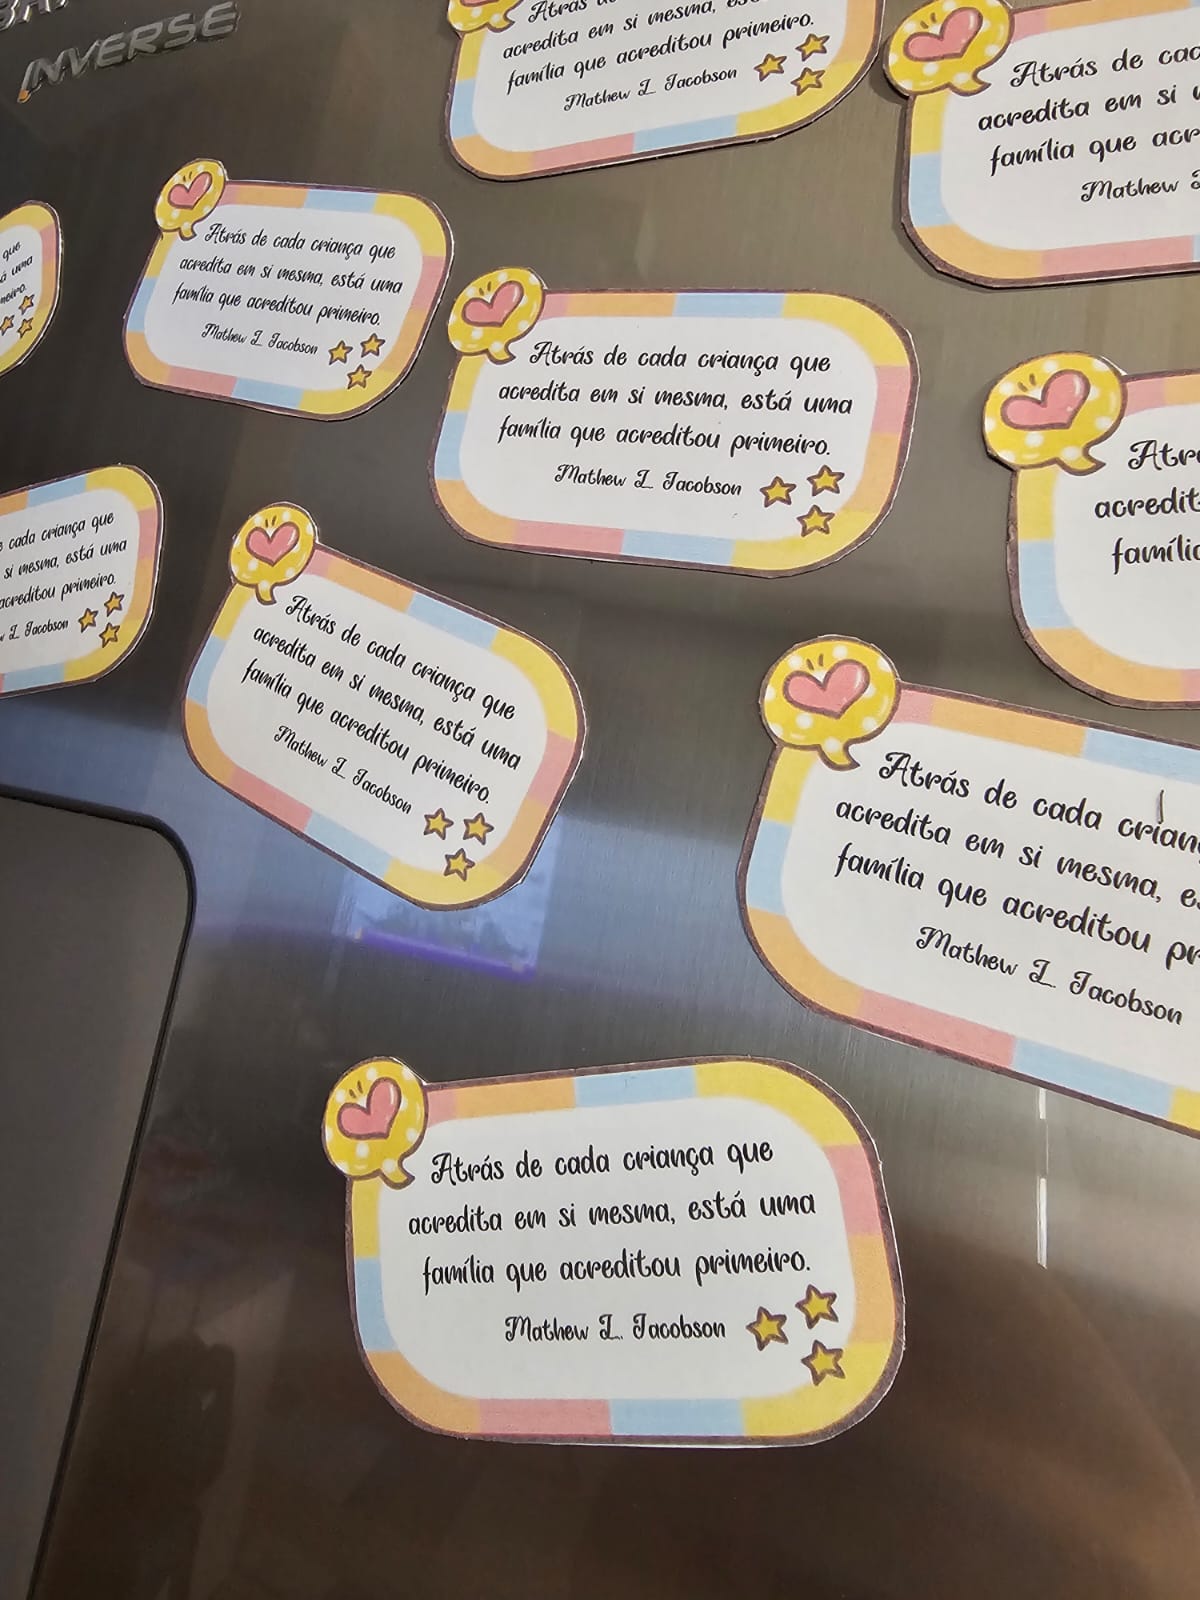 INVERSE
acredita em si mesma,
família que acreditou primeiro.
Mathew L. Jacobson
Atrás de cada
acredita em si
família que
Mathew
que
uma
Atrás de cada criança que
acredita em si mesma, está uma
família que acreditou primeiro.
Mathew L. Jacobson
Atrás de cada criança que
acredita em si mesma, está uma
família que acreditou primeiro.
Mathew L. Jacobson
cada criança que
si mesma, está uma
acreditou primeiro.
L. Jacobson
Atrás de cada criança que
acredita em si mesma, está uma
família que acreditou primeiro.
Mathew L. Jacobson
Atrás de cada
acredita em si mesma,
família que acreditou
Mathew L. Jacobson
Atrás de cada criança que
acredita em si mesma, está uma
família que acreditou primeiro.
Mathew L. Jacobson